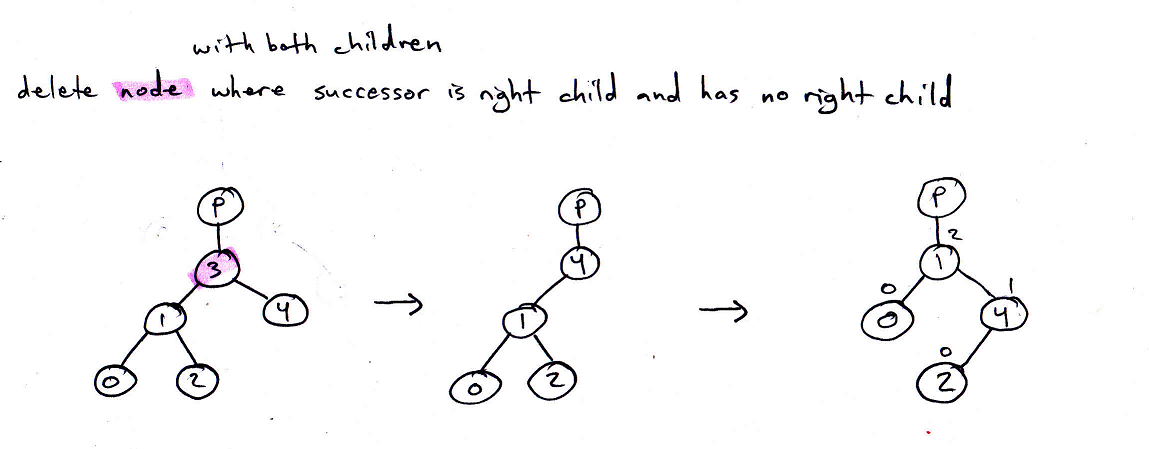 with both children
delete node where successor is right child and has no right child
P P P
2
3 4 1
0 1
1 4 1 0 4
0
0 2 0 2 2